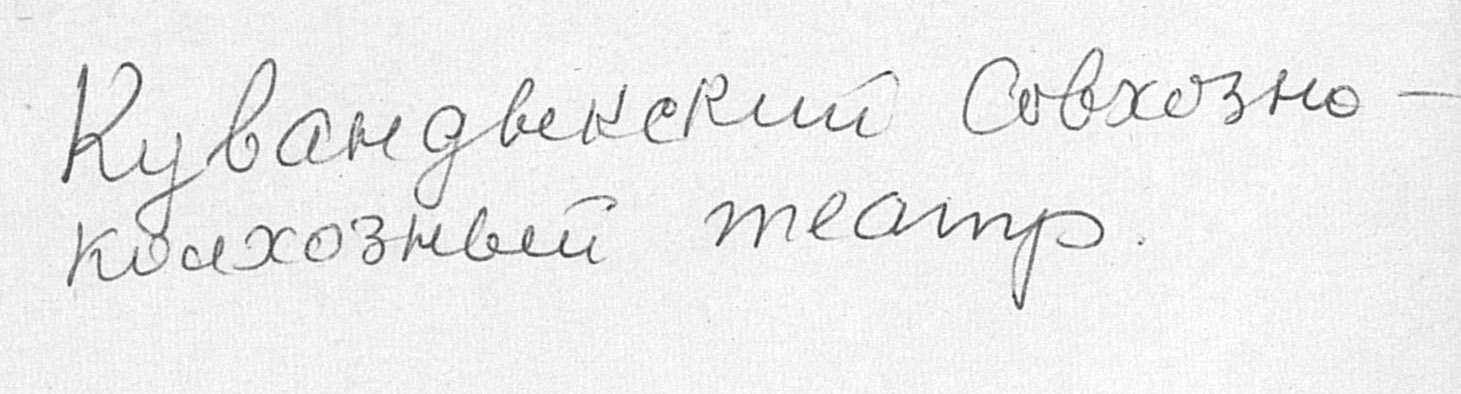 Кувандыкский Совхозно-
колхозный театр.